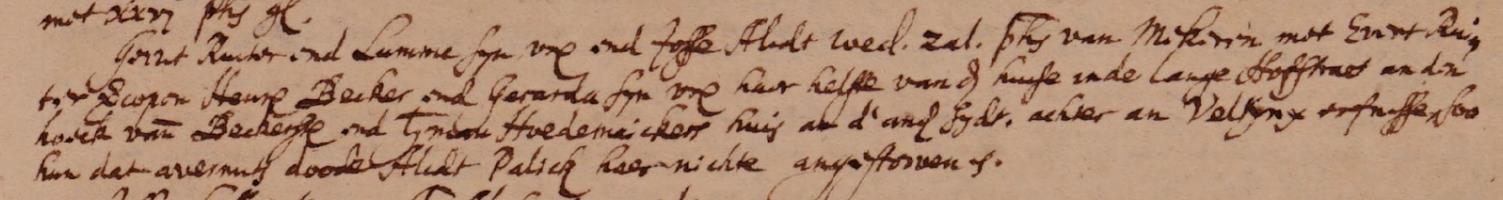 met xxvj phs gl.
Geret Ruiter end Lumme syn vrp end Joffe Alidt wed. zal. phs van Mekeren met Evert Rui
ter Ecopen Henrp Becker end Gerarda syn vrp haer helfte vand huise in de lange Hofstraet an den
hoeck van Beckers end Tymen Hoedemaickers huis an d' and sydt. achter an Veltynx erfnisse soo
hun dat avermits doode Alidt Palick haer nichte angestorven is.